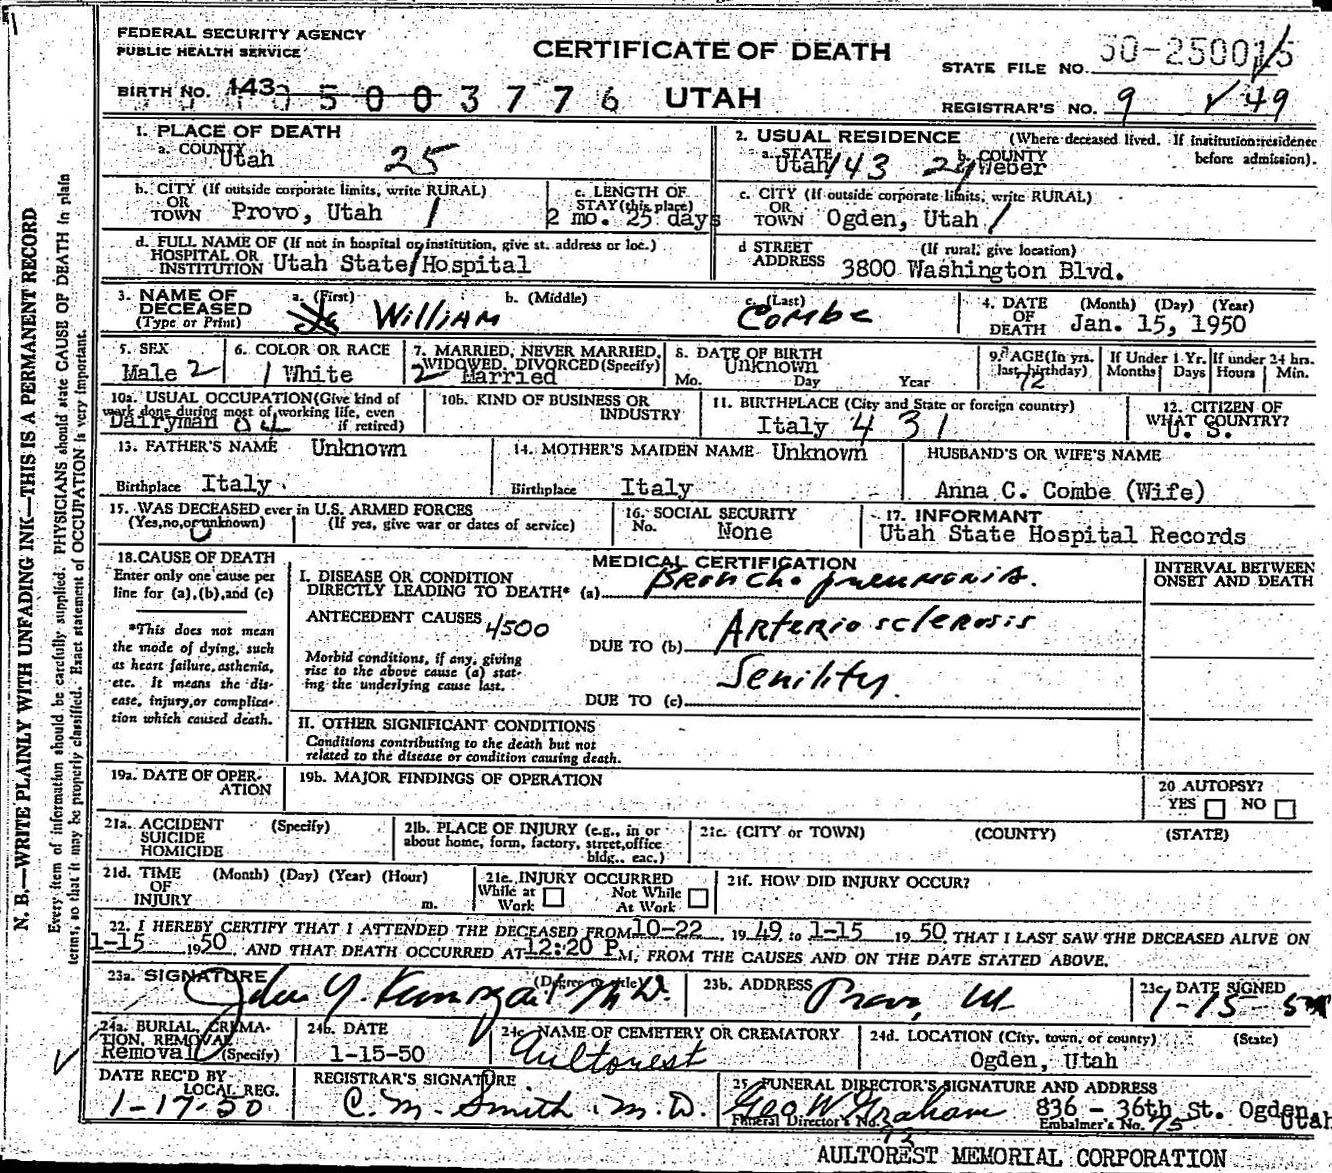 FEDERAL SECURITY AGENCY
PUBLIC HEALTH SERVICE
CERTIFICATE OF DEATH
STATE FILE NO. 50-250015
BIRTH NO. 143 05003776
UTAH
REGISTRAR'S NO. 9 √ 49
1. PLACE OF DEATH
a. COUNTY
Utah 25
2. USUAL RESIDENCE (Where deceased lived. If institution:residence before admission).
a. STATE Utah 143 b. COUNTY Weber
b. CITY (If outside corporate limits, write RURAL)
OR
TOWN Provo, Utah 1
c. LENGTH OF
STAY (this place)
2 mo. 25 days
c. CITY (If outside corporate limits, write RURAL)
OR
TOWN Ogden, Utah 1
d. FULL NAME OF (If not in hospital or institution, give st. address or loc.)
HOSPITAL OR
INSTITUTION Utah State Hospital
d STREET (If rural, give location)
ADDRESS 3800 Washington Blvd.
3. NAME OF
DECEASED
(Type or Print)
a. (First) b. (Middle) c. (Last)
William Combe
4. DATE (Month) (Day) (Year)
OF
DEATH Jan. 15, 1950
5. SEX
Male 2
6. COLOR OR RACE
1 White
7. MARRIED, NEVER MARRIED,
WIDOWED, DIVORCED(Specify)
2 Married
8. DATE OF BIRTH
Unknown
Mo. Day Year
9. AGE(In yrs.
last birthday)
72
If Under 1 Yr.
Months Days
If under 24 hrs.
Hours Min.
10a. USUAL OCCUPATION(Give kind of
work done during most of working life, even
if retired)
Dairyman 04
10b. KIND OF BUSINESS OR
INDUSTRY
11. BIRTHPLACE (City and State or foreign country)
Italy 431
12. CITIZEN OF
WHAT COUNTRY?
U. S.
13. FATHER'S NAME Unknown
Birthplace Italy
14. MOTHER'S MAIDEN NAME Unknown
Birthplace Italy
HUSBAND'S OR WIFE'S NAME
Anna C. Combe (Wife)
15. WAS DECEASED ever in U.S. ARMED FORCES
(Yes,no,or unknown) (If yes, give war or dates of service)
16. SOCIAL SECURITY
No. None
17. INFORMANT
Utah State Hospital Records
18.CAUSE OF DEATH
Enter only one cause per
line for (a),(b),and (c)
*This does not mean
the mode of dying, such
as heart failure, asthenia,
etc. It means the dis-
ease, injury,or complica-
tion which caused death.
MEDICAL CERTIFICATION
INTERVAL BETWEEN
ONSET AND DEATH
I. DISEASE OR CONDITION
DIRECTLY LEADING TO DEATH* (a) Broncho pneumonia.
ANTECEDENT CAUSES 4500
DUE TO (b) Arterio sclerosis
Morbid conditions, if any, giving
rise to the above cause (a) stat-
ing the underlying cause last.
DUE TO (c) Senility.
II. OTHER SIGNIFICANT CONDITIONS
Conditions contributing to the death but not
related to the disease or condition causing death.
19a. DATE OF OPER-
ATION
19b. MAJOR FINDINGS OF OPERATION
20 AUTOPSY?
YES NO
21a. ACCIDENT (Specify)
SUICIDE
HOMICIDE
21b. PLACE OF INJURY (e.g., in or
about home, form, factory, street,office
bldg., eac.)
21c. (CITY or TOWN) (COUNTY) (STATE)
21d. TIME (Month) (Day) (Year) (Hour)
OF
INJURY m.
21e. INJURY OCCURRED
While at Not While
Work At Work
21f. HOW DID INJURY OCCUR?
22. I HEREBY CERTIFY THAT I ATTENDED THE DECEASED FROM 10-22 1949 to 1-15 1950 THAT I LAST SAW THE DECEASED ALIVE ON
1-15 1950 AND THAT DEATH OCCURRED AT 12:20 P M, FROM THE CAUSES AND ON THE DATE STATED ABOVE.
23a. SIGNATURE (Degree or title)
M.D.
23b. ADDRESS
Provo, Ut
23c. DATE SIGNED
1-15-50
24a. BURIAL, CREMA-
TION, REMOVAL
Removal (Specify)
24b. DATE
1-15-50
24c. NAME OF CEMETERY OR CREMATORY
Aultorest
24d. LOCATION (City, town, or county) (State)
Ogden, Utah
DATE REC'D BY
LOCAL REG.
1-17-50
REGISTRAR'S SIGNATURE
C. M. Smith M.D.
25. FUNERAL DIRECTOR'S SIGNATURE AND ADDRESS
Geo W Graham 836 - 36th St. Ogden, Utah
Funeral Director's No. 93 Embalmer's No. 75
AULTOREST MEMORIAL CORPORATION
N. B.—WRITE PLAINLY WITH UNFADING INK—THIS IS A PERMANENT RECORD
Every item of information should be carefully supplied. PHYSICIANS should state CAUSE OF DEATH in plain
terms, so that it may be properly classified. Exact statement of OCCUPATION is very important.